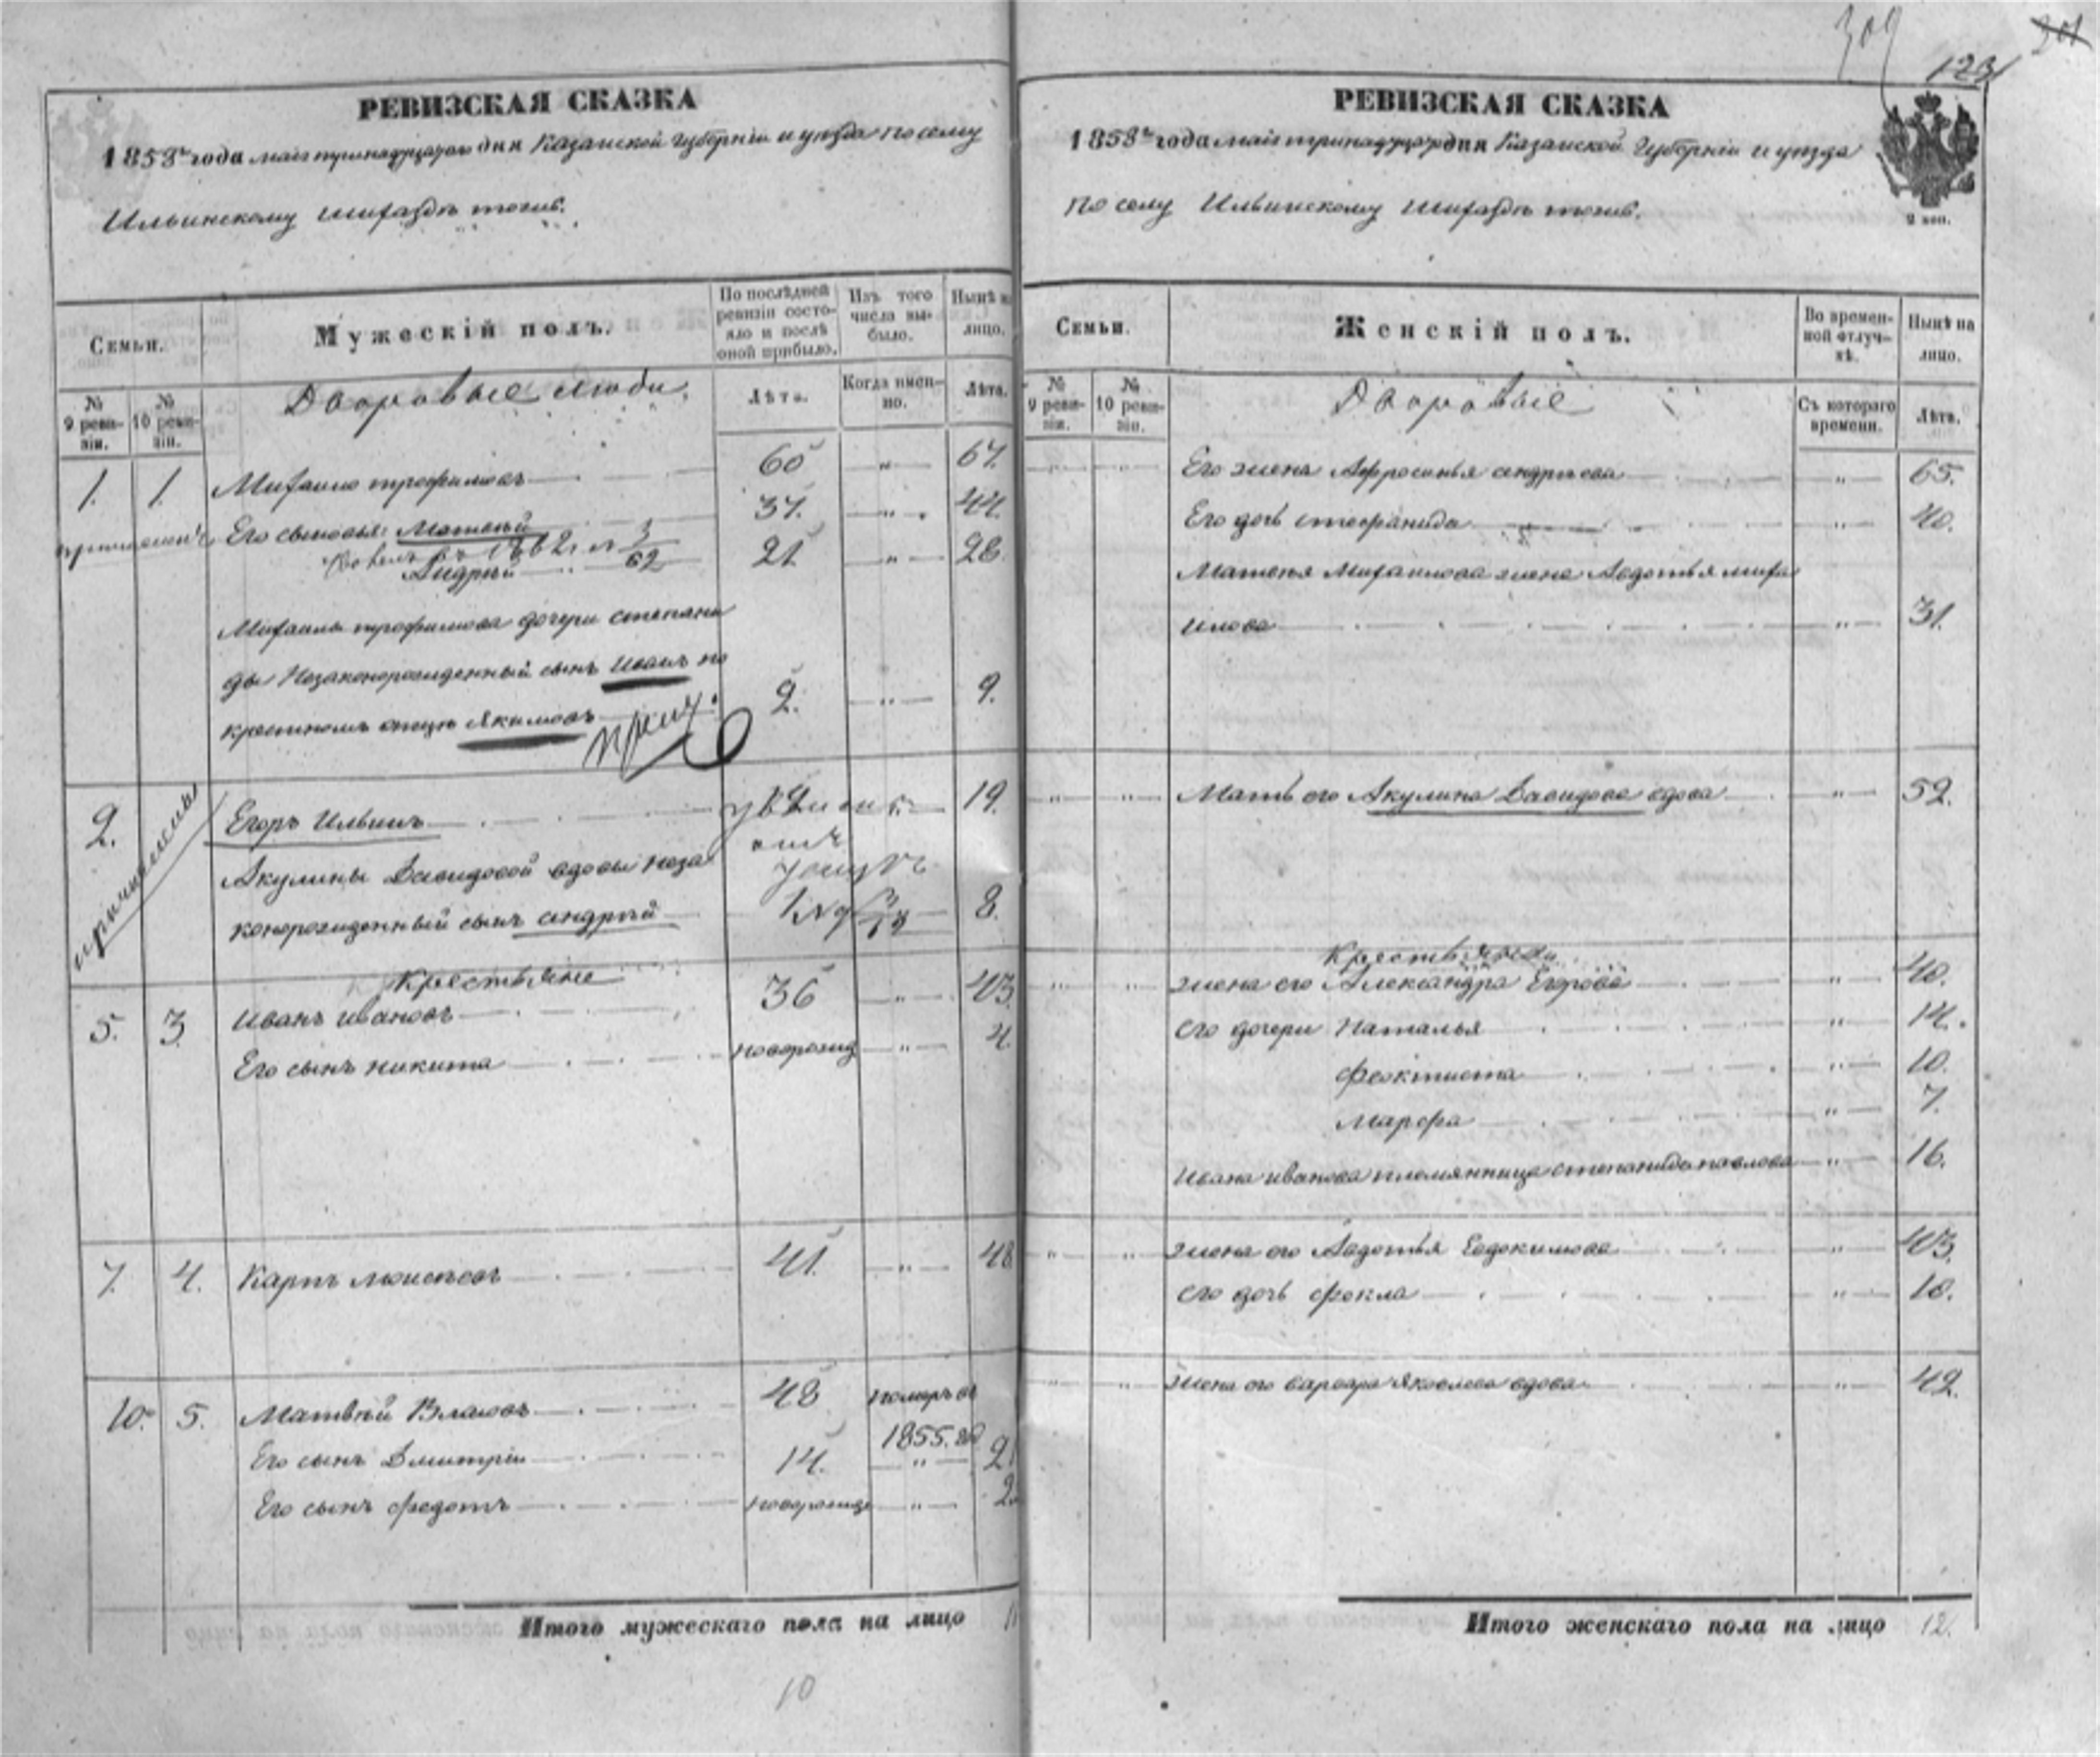 309
123
РЕВИЗСКАЯ СКАЗКА
1858 года мая тринадцатого дня Казанской губернiи и уезда по селу
Ильинскому
Семьи.
Мужескiй полъ.
По послѣдней ревизiи состояло и послѣ оной прибыло.
Изъ того числа выбыло.
Нынѣ на лицо.
№ 9 ревизiи.
№ 10 ревизiи.
Дворовые люди.
Лѣта.
Когда именно.
Лѣта.
1. 1. Михаило трофимовъ 60 " 67.
Его сыновья: Матвей 37. " 44.
1862
Андрей 21 " 28.
Михаила трофимова дочери степани
ды Незаконорожденный сынъ Иванъ по
крестномъ отцѣ Якимовъ 2. " 9.
2. Егоръ Ильинъ 12 19.
Акулины Давидовой вдовы неза
конорожденный сынъ андрей 1 8.
причислены
Крестьяне
5. 3. Иванъ Ивановъ 36 " 43.
Его сынъ никита новорожд " 4.
7. 4. Карпъ моисеевъ 41. " 48
10. 5. Матвѣй Власовъ 48 померъ въ
1855. год
Его сынъ Дмитрiи 14. " 21
Его сынъ федотъ новорожде " 2
Итого мужескаго пола на лицо 11
10
РЕВИЗСКАЯ СКАЗКА
1858 года мая тринадцатаго дня Казанской Губернiи и уезда
по селу Ильинскому
2 коп.
Семьи.
Женскiй полъ.
Во временной отлучкѣ.
Нынѣ на лицо.
№ 9 ревизiи.
№ 10 ревизiи.
Дворовые
Съ котораго времени.
Лѣта.
Его жена Афросинья андреева " 65.
Его дочь стефанида " 40.
Матвея Михаилова жена Авдотья миха
илова " 31.
Мать его Акулина Давидова вдова " 52.
Крестьяне
жена его Александра Егорова " 40.
его дочери Наталья " 14.
феоктиста " 10.
марфа " 7.
Ивана иванова племянница степанида павлова " 16.
жена его Авдотья Евдокимова " 43.
его дочь фекла " 10.
жена его варвара Яковлева вдова " 42.
Итого женскаго пола на лицо 12.